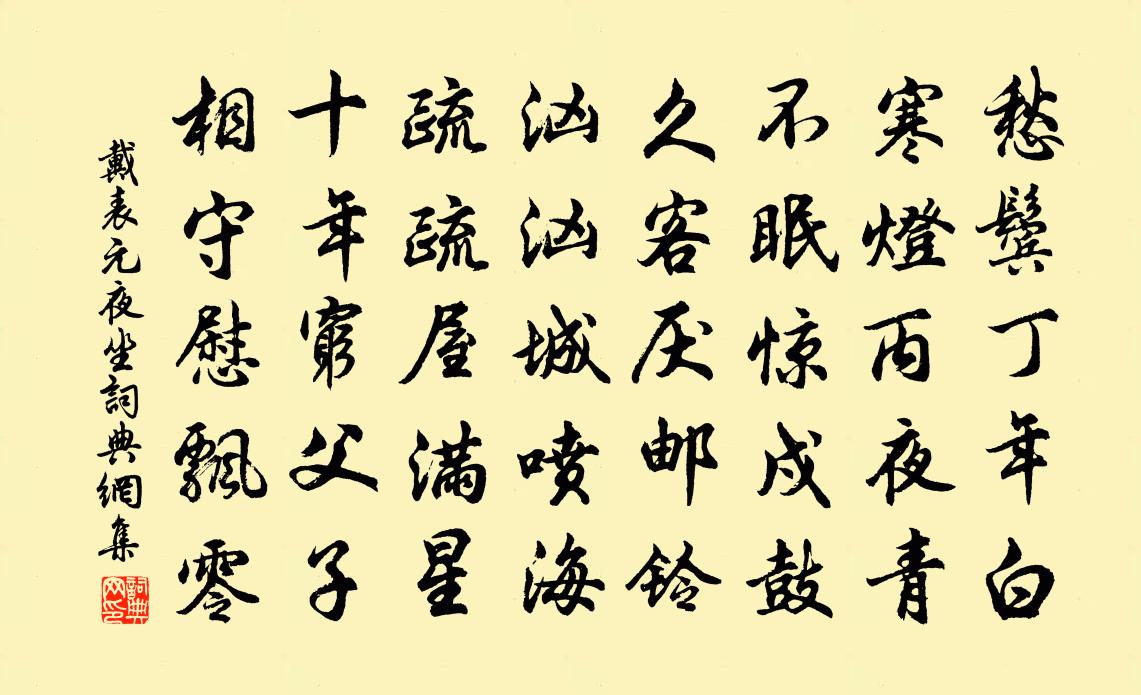 愁鬓丁年白
寒燈丙夜青
不眠惊戍鼓
久客厌邮铃
汹汹城喷海
疏疏屋满星
十年窮父子
相守慰飄零
戴表元夜坐詞典網集
詞典网印